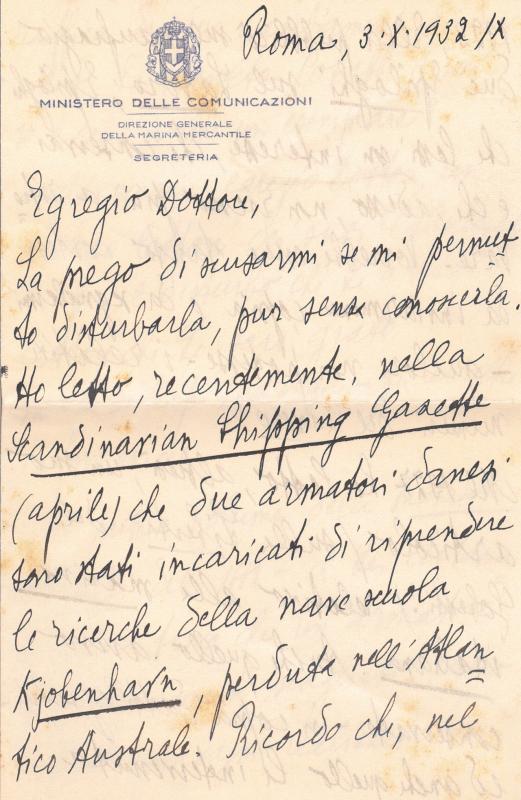 Roma, 3·X·1932/X
MINISTERO DELLE COMUNICAZIONI
DIREZIONE GENERALE
DELLA MARINA MERCANTILE
SEGRETERIA
Egregio Dottore,
La prego di scusarmi se mi permet
to disturbarla, pur senza conoscerla.
Ho letto, recentemente, nella
Scandinavian Shipping Gazette
(aprile) che due armatori danesi
sono stati incaricati di riprendere
le ricerche della nave scuola
Kjobenhavn, perduta nell'Atlan
tico Australe. Ricordo che, nel